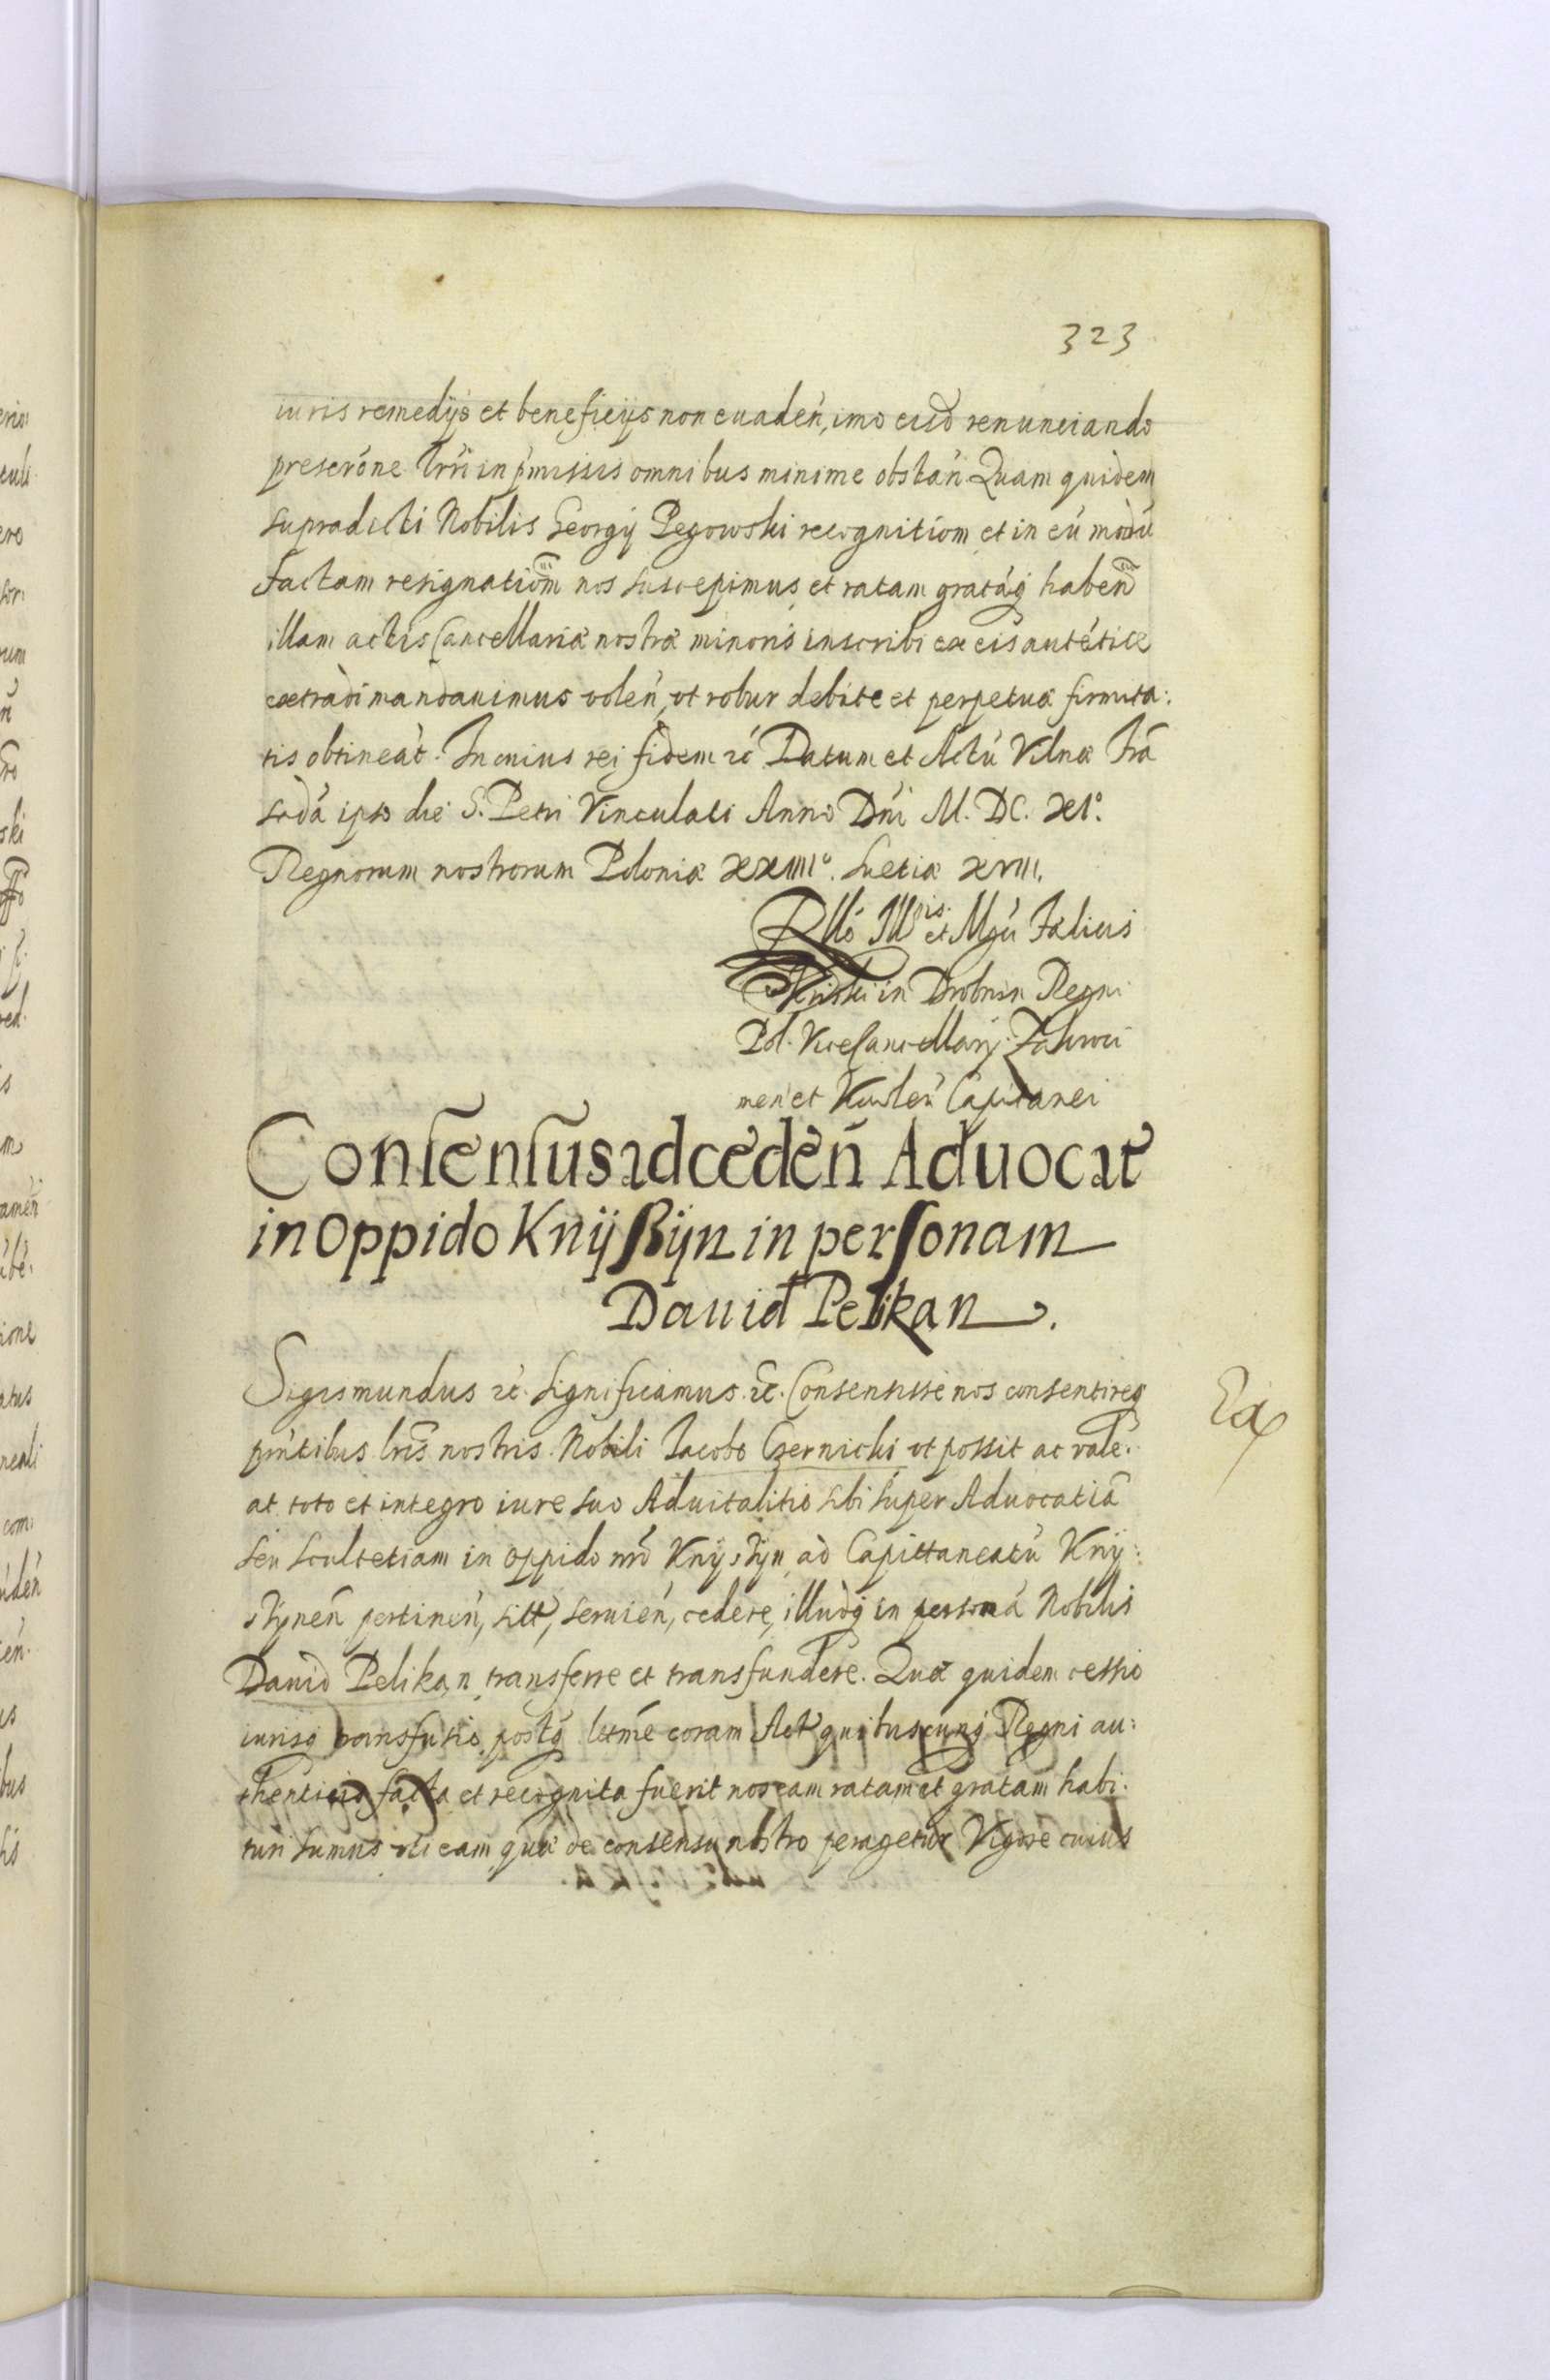 323
iuris remedijs et beneficijs non euadeń, imo eisd renunciando
prescróne trrii in p̃missis omnibus minime obstań. Quam quidem
supradicti Nobilis Georgij Pegowski recognitiom et in eú modú
factam resignatiom nos suscepimus, et ratam gratáq haben
illam actis Cancellariæ nostræ minoris inscribi ex eis autétice
extradi mandauimus voleń, ut robur debite et perpetuæ firmita:
tis obtineát. In cuius rei fidem ꝛc̃ Datum et Actú Vilnæ Frá
sodá ipso die S. Petri Vinculati Anno Dńi M. DC. XI°.
Regnorum nostrorum Poloniæ XXIIII°. Suetiæ XVIII.
Rlló Ill et Mgci Falicis
Kriski in Drobnin Regni
Pol. ViceCancellarij
meń et Capitanei
Consensus ad cedeń Aduocat
in Oppido Knijßijn in personam
Dauid Pelikan.
Sigismundus ꝛc̃. Significamus. ꝛc̃. Consensisse nos consentireq
Ex
pńtibus lris nostris Nobili Iacobo Czernicki ut possit ac vale:
at toto et integro iure suo Aduitalitio sibi super Aduocatiá
seu Scultetiam in oppido nró Knijstijn, ad Capittaneatú Knij:
stijneń pertineń, sitt, seruień, cedere, illudq in personá Nobilis
Dauid Pelikan, transferre et transfundere. Quæ quidem cessio
iurisq transfusio postq ltme coram Act quibuscunq Regni au:
thenticis facta et recognita fuerit nos eam ratam et gratam habi:
turi sumus uti eam quæ de consensu nostro peragetur Vigore cuius